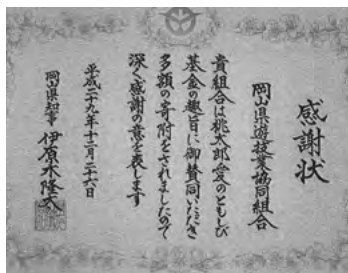 感謝状
岡山県遊技業協同組合
貴組合は桃太郎愛のともしび
基金の趣旨に御賛同いただき
多額の寄附をされましたので
深く感謝の意を表します
平成二十九年十二月二十六日
岡山県知事 伊原木隆太